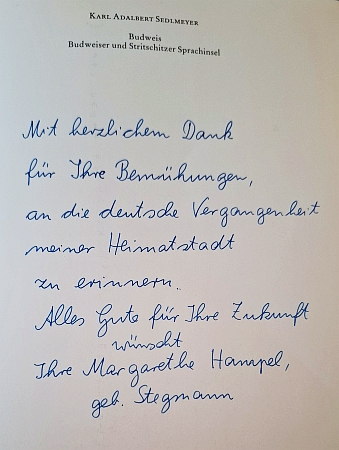 Karl Adalbert Sedlmeyer
Budweis
Budweiser und Stritschitzer Sprachinsel
Mit herzlichem Dank
für Ihre Bemühungen,
an die deutsche Vergangenheit
meiner Heimatstadt
zu erinnern.
Alles Gute für Ihre Zukunft
wünscht
Ihre Margarethe Hampel,
geb. Stegmann